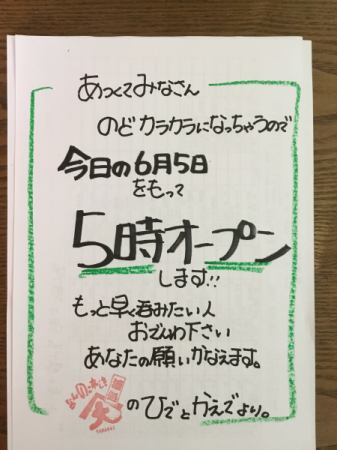 あつくてみなさん
のどカラカラになっちゃうので
今日の6月5日
をもって
5時オープン
します!!
もっと早く呑みたい人
おでんわ下さい
あなたの願いかなえます。
のひでとかえでより。